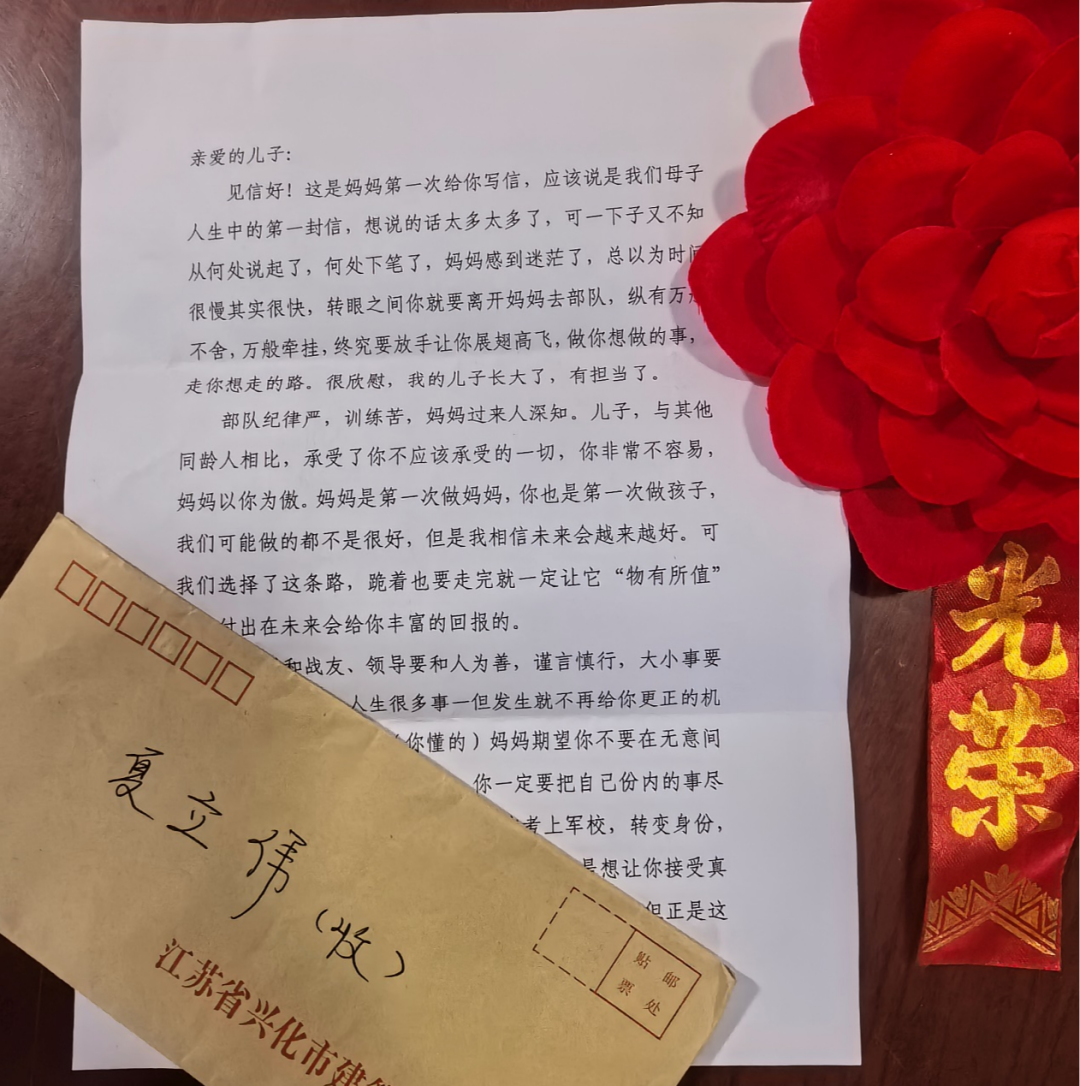 亲爱的儿子：
见信好！这是妈妈第一次给你写信，应该说是我们母子
人生中的第一封信，想说的话太多太多了，可一下子又不知
从何处说起了，何处下笔了，妈妈感到迷茫了，总以为时间
很慢其实很快，转眼之间你就要离开妈妈去部队，纵有万
不舍，万般牵挂，终究要放手让你展翅高飞，做你想做的事，
走你想走的路。很欣慰，我的儿子长大了，有担当了。
部队纪律严，训练苦，妈妈过来人深知。儿子，与其他
同龄人相比，承受了你不应该承受的一切，你非常不容易，
妈妈以你为傲。妈妈是第一次做妈妈，你也是第一次做孩子，
我们可能做的都不是很好，但是我相信未来会越来越好。可
我们选择了这条路，跪着也要走完就一定让它“物有所值”
付出在未来会给你丰富的回报的。
和战友、领导要和人为善，谨言慎行，大小事要
人生很多事一但发生就不再给你更正的机
（你懂的）妈妈期望你不要在无意间
你一定要把自己份内的事尽
考上军校，转变身份，
是想让你接受真
但正是这
夏立伟（收）
贴邮
票处
江苏省兴化市建
光荣